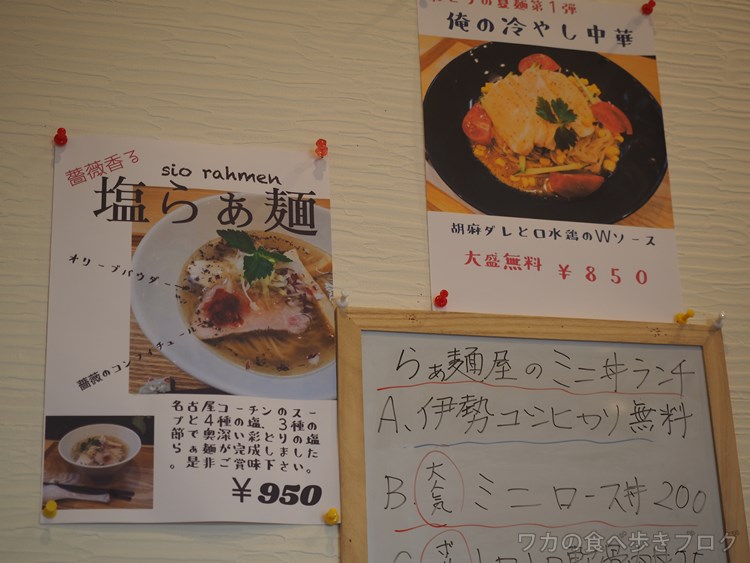 薔薇香る
sio rahmen
塩らぁ麺
オリーブパウダー
薔薇のコンフィチュール
名古屋コーチンのスー
プと4種の塩、3種の
節で奥深い彩どりの塩
らぁ麺が完成しました
。是非ご賞味下さい。
￥950
の夏麺第1弾
俺の冷やし中華
胡麻ダレと口水鶏のWソース
大盛無料 ￥850
らぁ麺屋のミニ丼ランチ
A、伊勢コシヒカリ無料
B. 大人気 ミニロース丼200
C
ワカの食べ歩きブログ